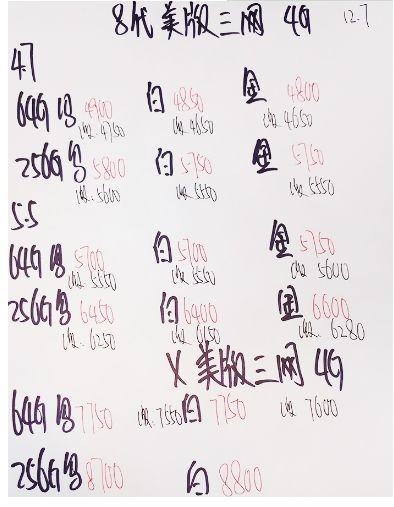 8代 美版三网 4G 12.7
4.7
64G 黑 4900 白 4850 金 4800
收 4750 收 4650 收 4650
256G 黑 5800 白 5750 金 5750
收 5600 收 5550 收 5550
5.5
64G 黑 5700 白 5700 金 5750
收 5550 收 5550 收 5600
256G 黑 6450 白 6400 金 6600
收 6250 收 6150 收 6280
X 美版三网 4G
64G 黑 7750 收 7550 白 7750 收 7600
256G 黑 8700 白 8800